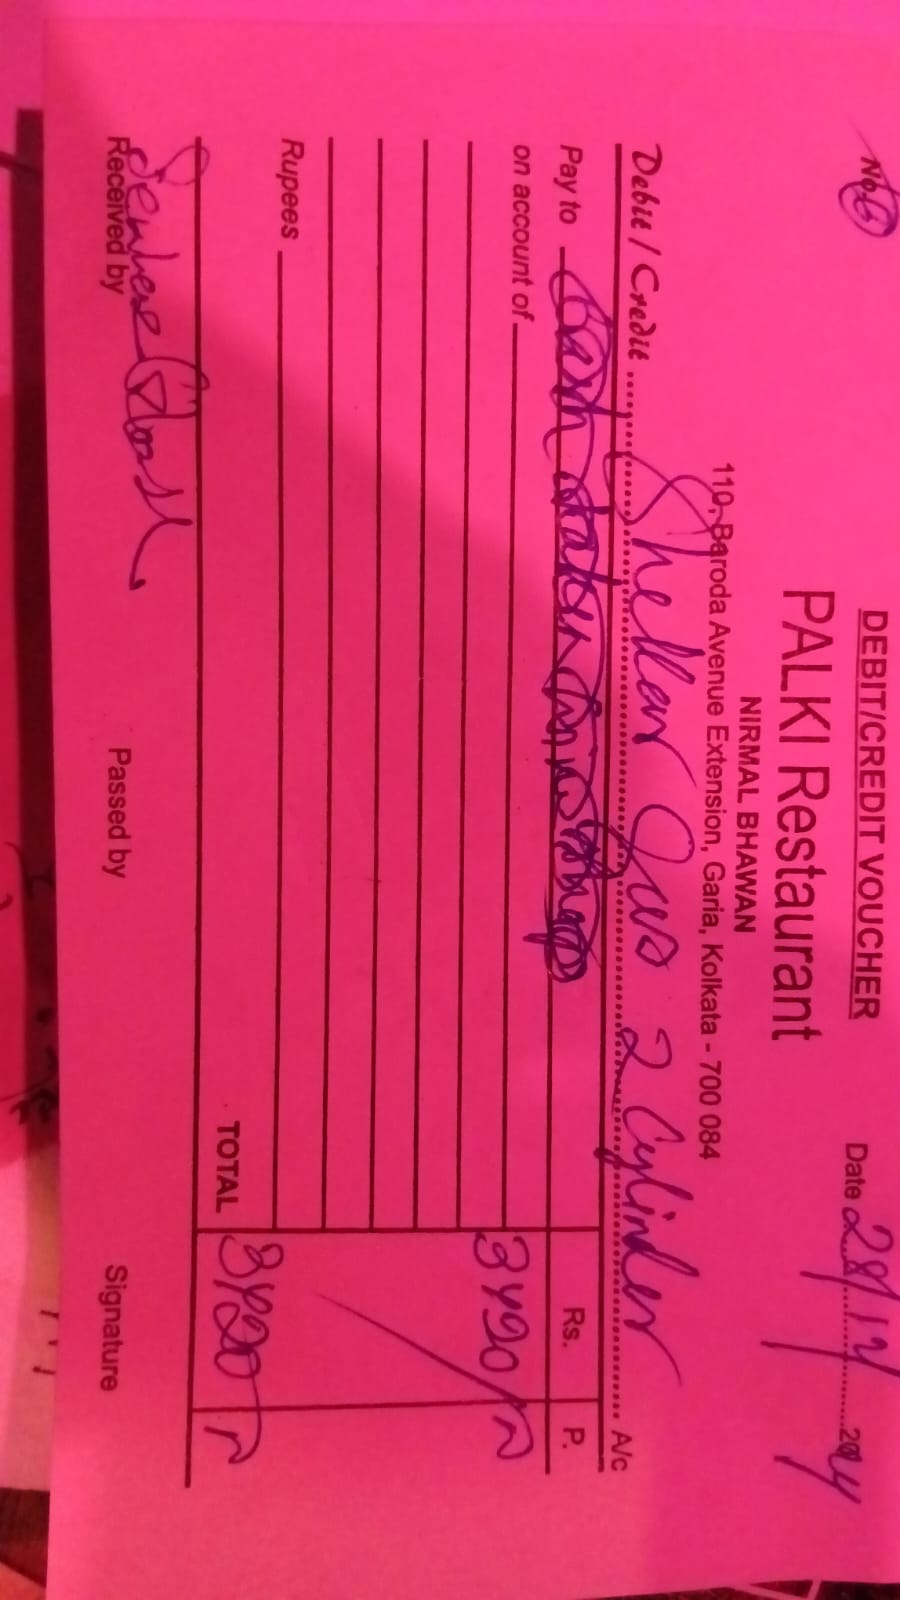 DEBIT/CREDIT VOUCHER
No. 6
Date 28/12/2024
PALKI Restaurant
NIRMAL BHAWAN
110, Baroda Avenue Extension, Garia, Kolkata - 700 084
Debit / Credit Shekhar Gas 2 Cylinder A/c
Pay to Cash taken from
Rs. P.
on account of
3420/-
Rupees
TOTAL 3420/-
Ghosh
Received by Passed by Signature